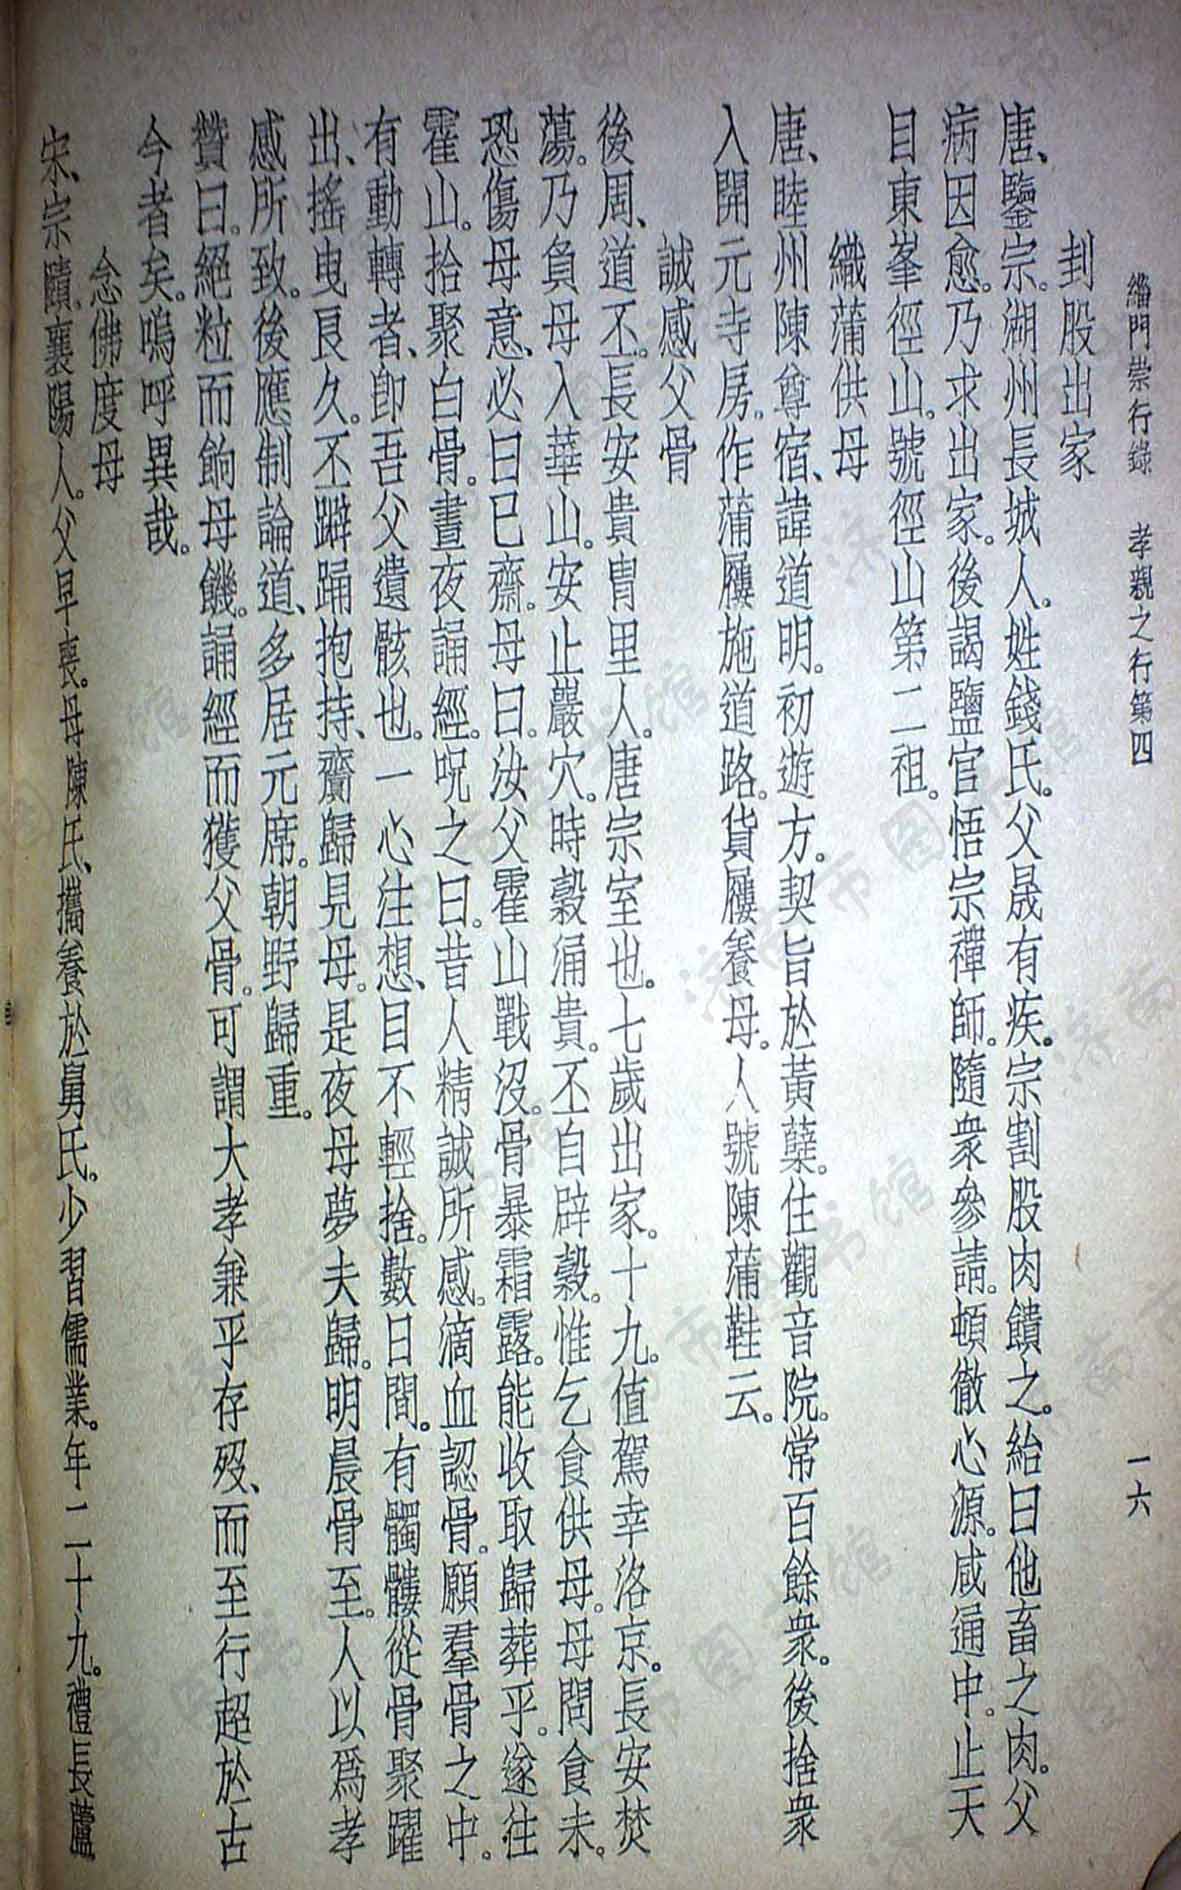 緇門崇行錄　孝親之行第四　一六
刲股出家
唐、鑒宗。湖州長城人。姓錢氏。父晟有疾。宗割股肉饋之。紿曰他畜之肉。父
病因愈。乃求出家。後謁鹽官悟宗禪師。隨衆參請。頓徹心源。咸通中。止天
目東峯徑山。號徑山第二祖。
織蒲供母
唐、睦州陳尊宿、諱道明。初遊方。契旨於黃蘗。住觀音院。常百餘衆。後捨衆
入開元寺房。作蒲屨施道路。貨屨養母。人號陳蒲鞋云。
誠感父骨
後周、道丕。長安貴胄里人。唐宗室也。七歲出家。十九。值駕幸洛京。長安焚
蕩。乃負母入華山。安止巖穴。時穀涌貴。丕自辟穀。惟乞食供母。母問食未。
恐傷母意、必曰已齋。母曰。汝父霍山戰沒。骨暴霜露。能收取歸葬乎。遂往
霍山。拾聚白骨。晝夜誦經。呪之曰。昔人精誠所感。滴血認骨。願羣骨之中。
有動轉者、卽吾父遺骸也。一心注想、目不輕捨。數日間。有髑髏從骨聚躍
出、搖曳良久。丕躃踊抱持、齎歸見母。是夜母夢夫歸。明晨骨至。人以爲孝
感所致。後應制論道、多居元席。朝野歸重。
贊曰。絕粒而餉母饑。誦經而獲父骨。可謂大孝兼乎存歿、而至行超於古
今者矣。嗚呼異哉。
念佛度母
宋、宗賾。襄陽人。父早喪。母陳氏、攜養於舅氏。少習儒業。年二十九。禮長蘆